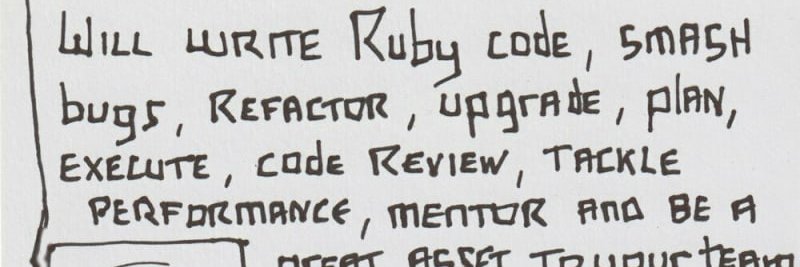 WILL WRITE Ruby code, SMASH
bugs, REFACTOR, upgrade, plAN,
EXECUTE, code REVIEW, TACKLE
PERFORMANCE, MENTOR AND BE A
GREAT ASSET TO YOUR TEAM